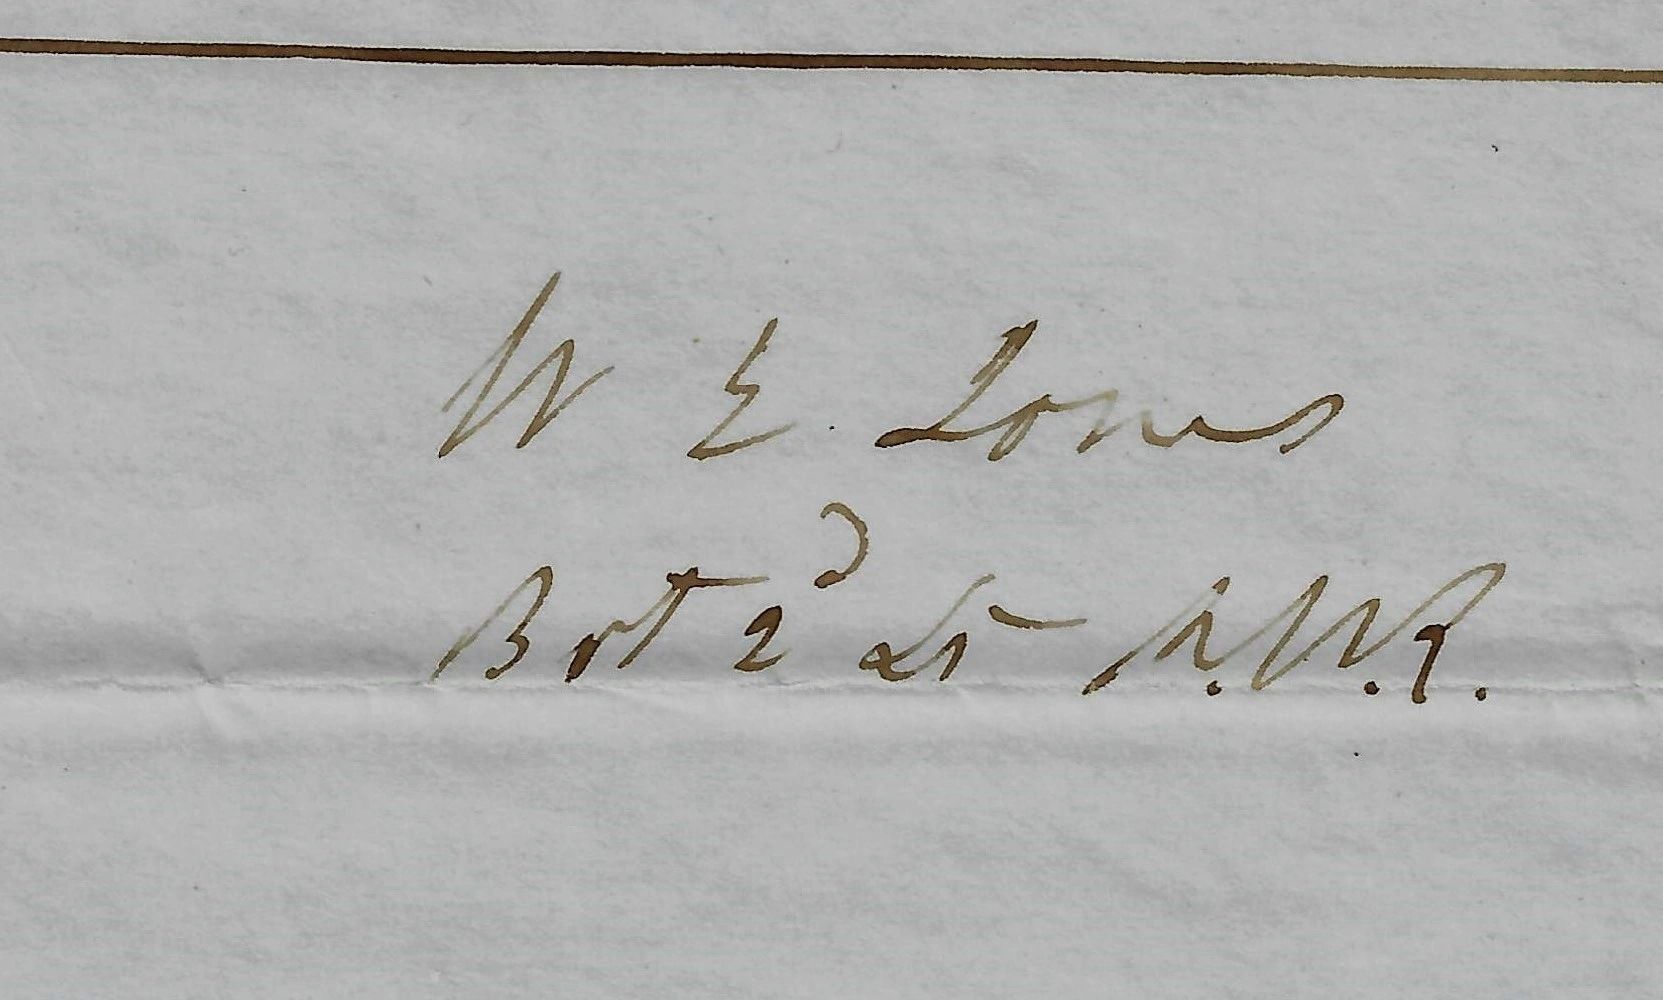 W E. Jones
Bvt 2d Lt R.M.R.